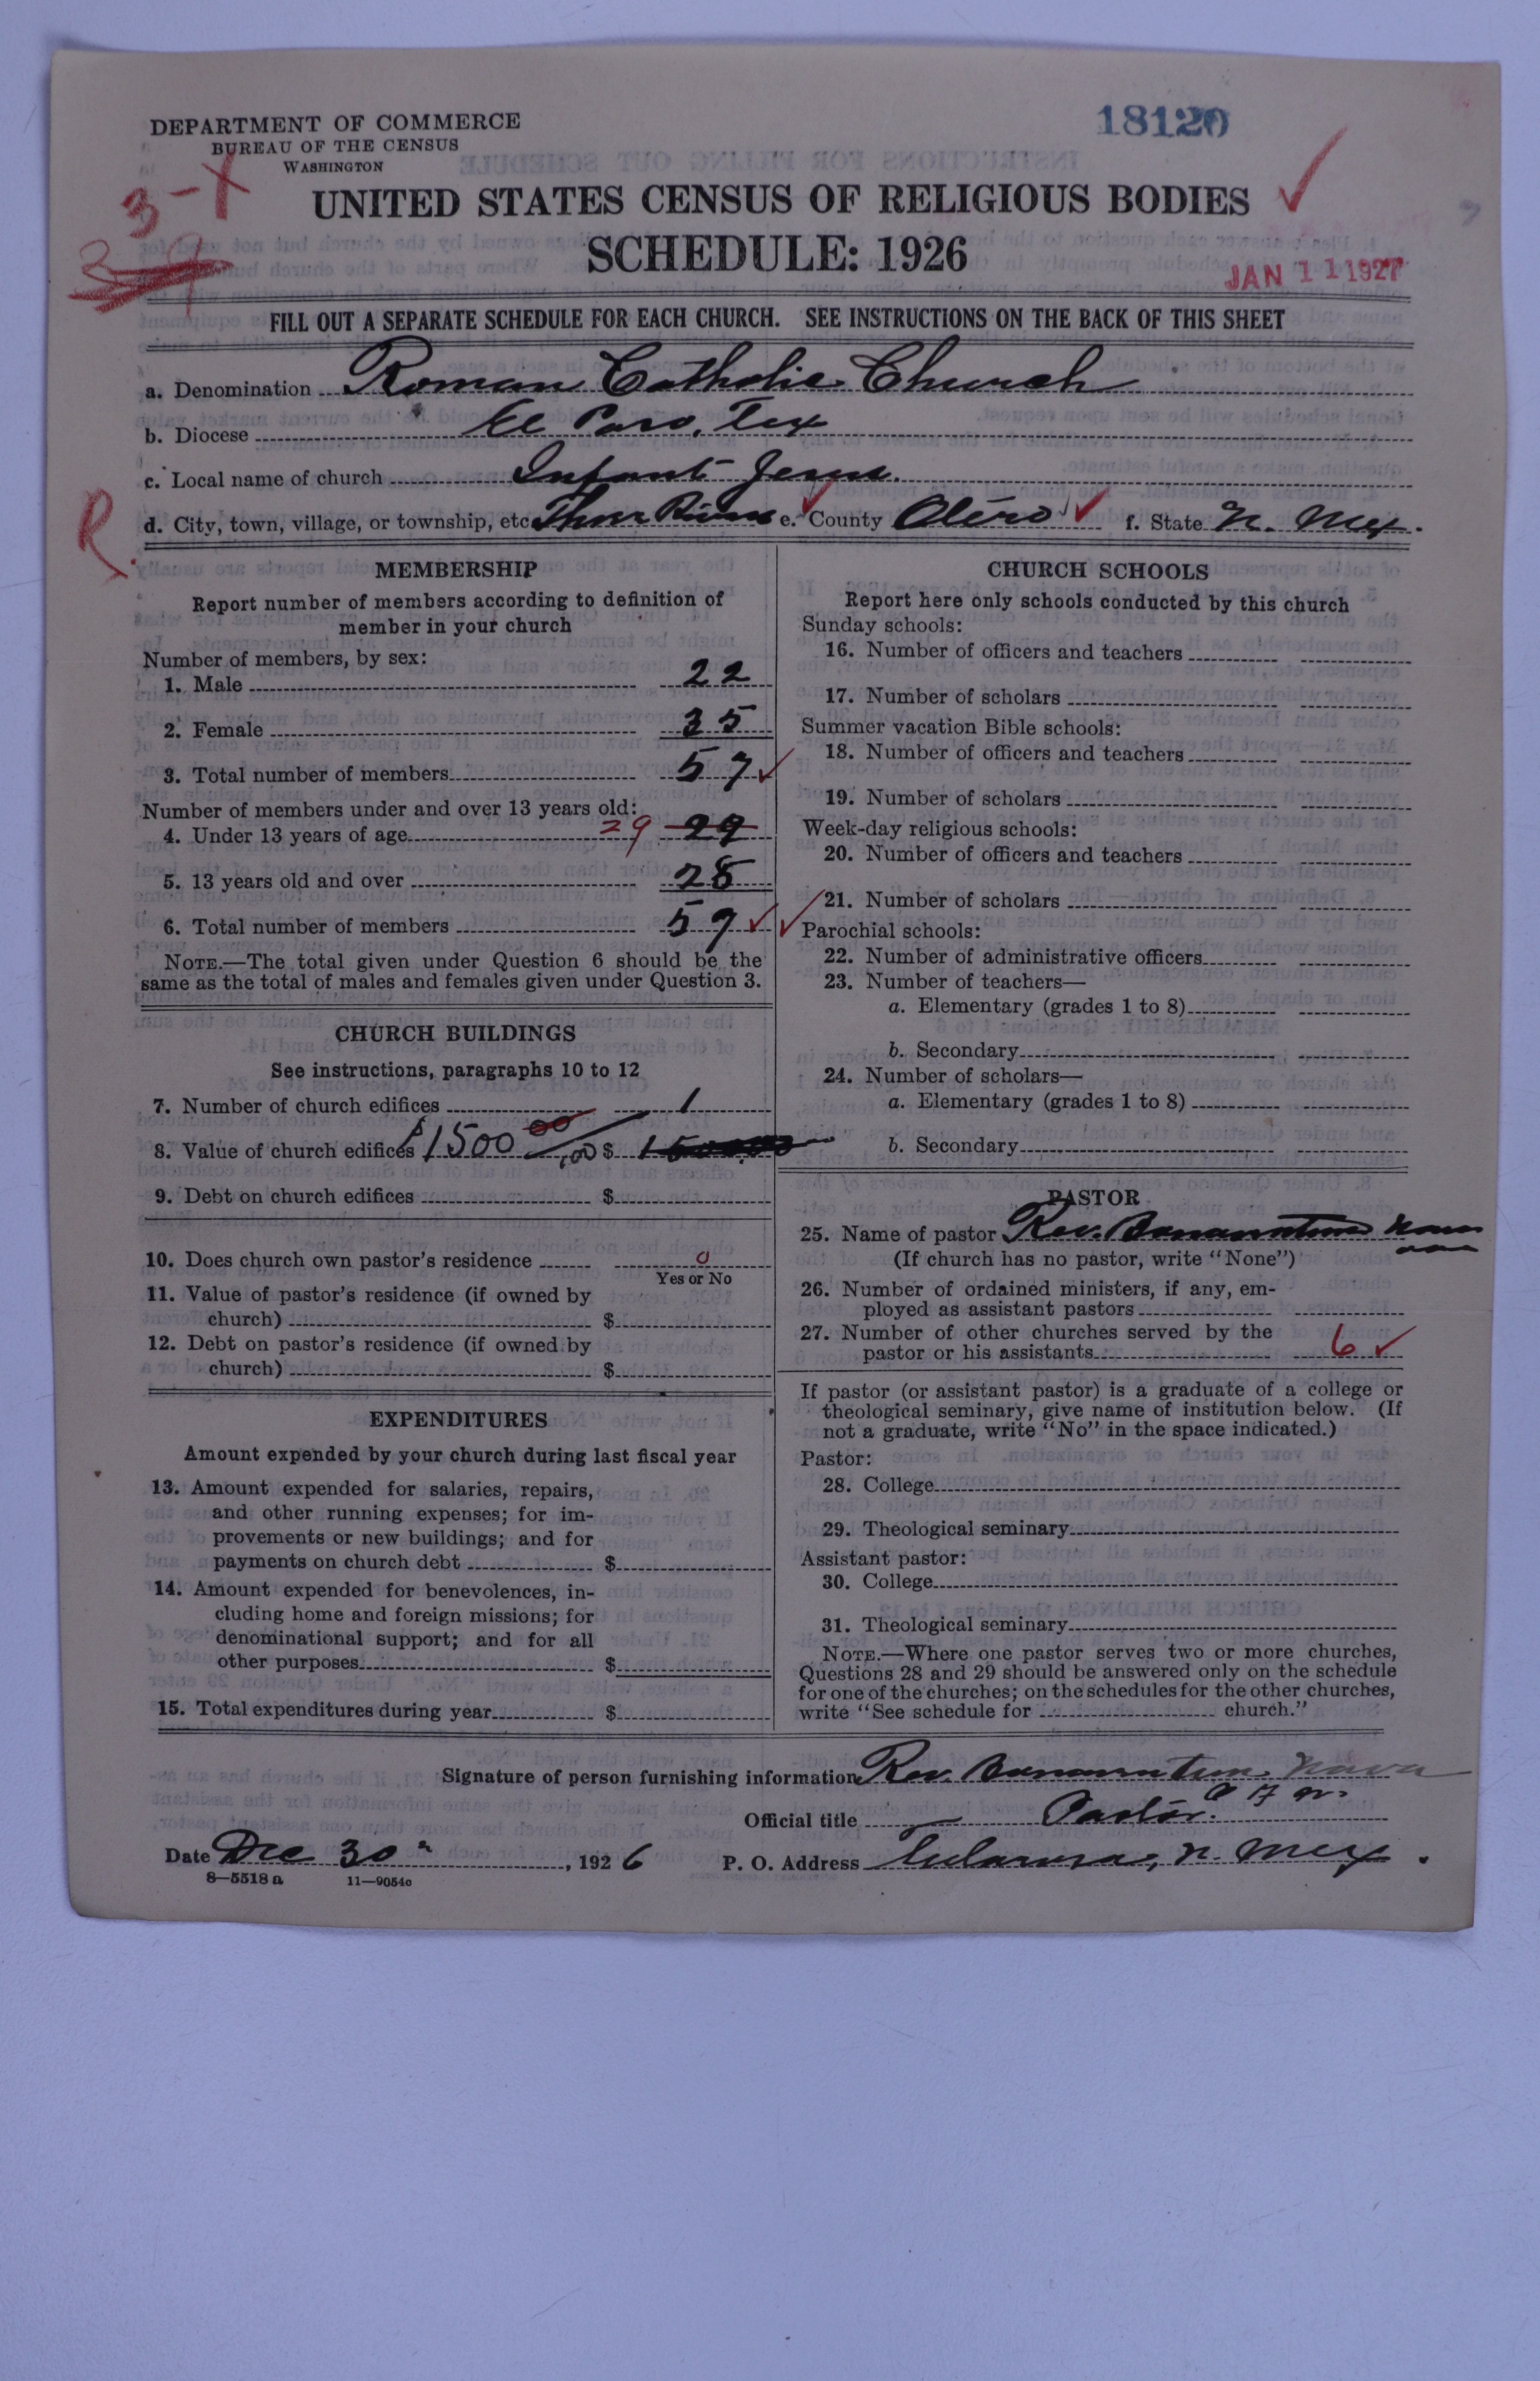 DEPARTMENT OF COMMERCE
BUREAU OF THE CENSUS
WASHINGTON
18120
3-X
UNITED STATES CENSUS OF RELIGIOUS BODIES
SCHEDULE: 1926
JAN 11 1927
FILL OUT A SEPARATE SCHEDULE FOR EACH CHURCH. SEE INSTRUCTIONS ON THE BACK OF THIS SHEET
a. Denomination Roman Catholic Church
b. Diocese El Paso, Tex
c. Local name of church Infant Jesus.
R. d. City, town, village, or township, etc. Three Rivers e. County Otero f. State N. Mex.
MEMBERSHIP
Report number of members according to definition of
member in your church
Number of members, by sex:
1. Male 22
2. Female 35
3. Total number of members 57
Number of members under and over 13 years old:
4. Under 13 years of age 29 29
5. 13 years old and over 28
6. Total number of members 57
NOTE.—The total given under Question 6 should be the
same as the total of males and females given under Question 3.
CHURCH BUILDINGS
See instructions, paragraphs 10 to 12
7. Number of church edifices 1
8. Value of church edifices $1500 00 $
9. Debt on church edifices $
10. Does church own pastor's residence 0
Yes or No
11. Value of pastor's residence (if owned by
church) $
12. Debt on pastor's residence (if owned by
church) $
EXPENDITURES
Amount expended by your church during last fiscal year
13. Amount expended for salaries, repairs,
and other running expenses; for im-
provements or new buildings; and for
payments on church debt $
14. Amount expended for benevolences, in-
cluding home and foreign missions; for
denominational support; and for all
other purposes $
15. Total expenditures during year $
CHURCH SCHOOLS
Report here only schools conducted by this church
Sunday schools:
16. Number of officers and teachers
17. Number of scholars
Summer vacation Bible schools:
18. Number of officers and teachers
19. Number of scholars
Week-day religious schools:
20. Number of officers and teachers
21. Number of scholars
Parochial schools:
22. Number of administrative officers
23. Number of teachers—
a. Elementary (grades 1 to 8)
b. Secondary
24. Number of scholars—
a. Elementary (grades 1 to 8)
b. Secondary
PASTOR
25. Name of pastor Rev. Bonaventure Nava
(If church has no pastor, write "None")
26. Number of ordained ministers, if any, em-
ployed as assistant pastors
27. Number of other churches served by the
pastor or his assistants 6
If pastor (or assistant pastor) is a graduate of a college or
theological seminary, give name of institution below. (If
not a graduate, write "No" in the space indicated.)
Pastor:
28. College
29. Theological seminary
Assistant pastor:
30. College
31. Theological seminary
NOTE.—Where one pastor serves two or more churches,
Questions 28 and 29 should be answered only on the schedule
for one of the churches; on the schedules for the other churches,
write "See schedule for church."
Signature of person furnishing information Rev. Bonaventure Nava
Official title Pastor.
Date Dec 30, 1926 P. O. Address Tularosa, N. Mex.
8—5518 a 11—9054c